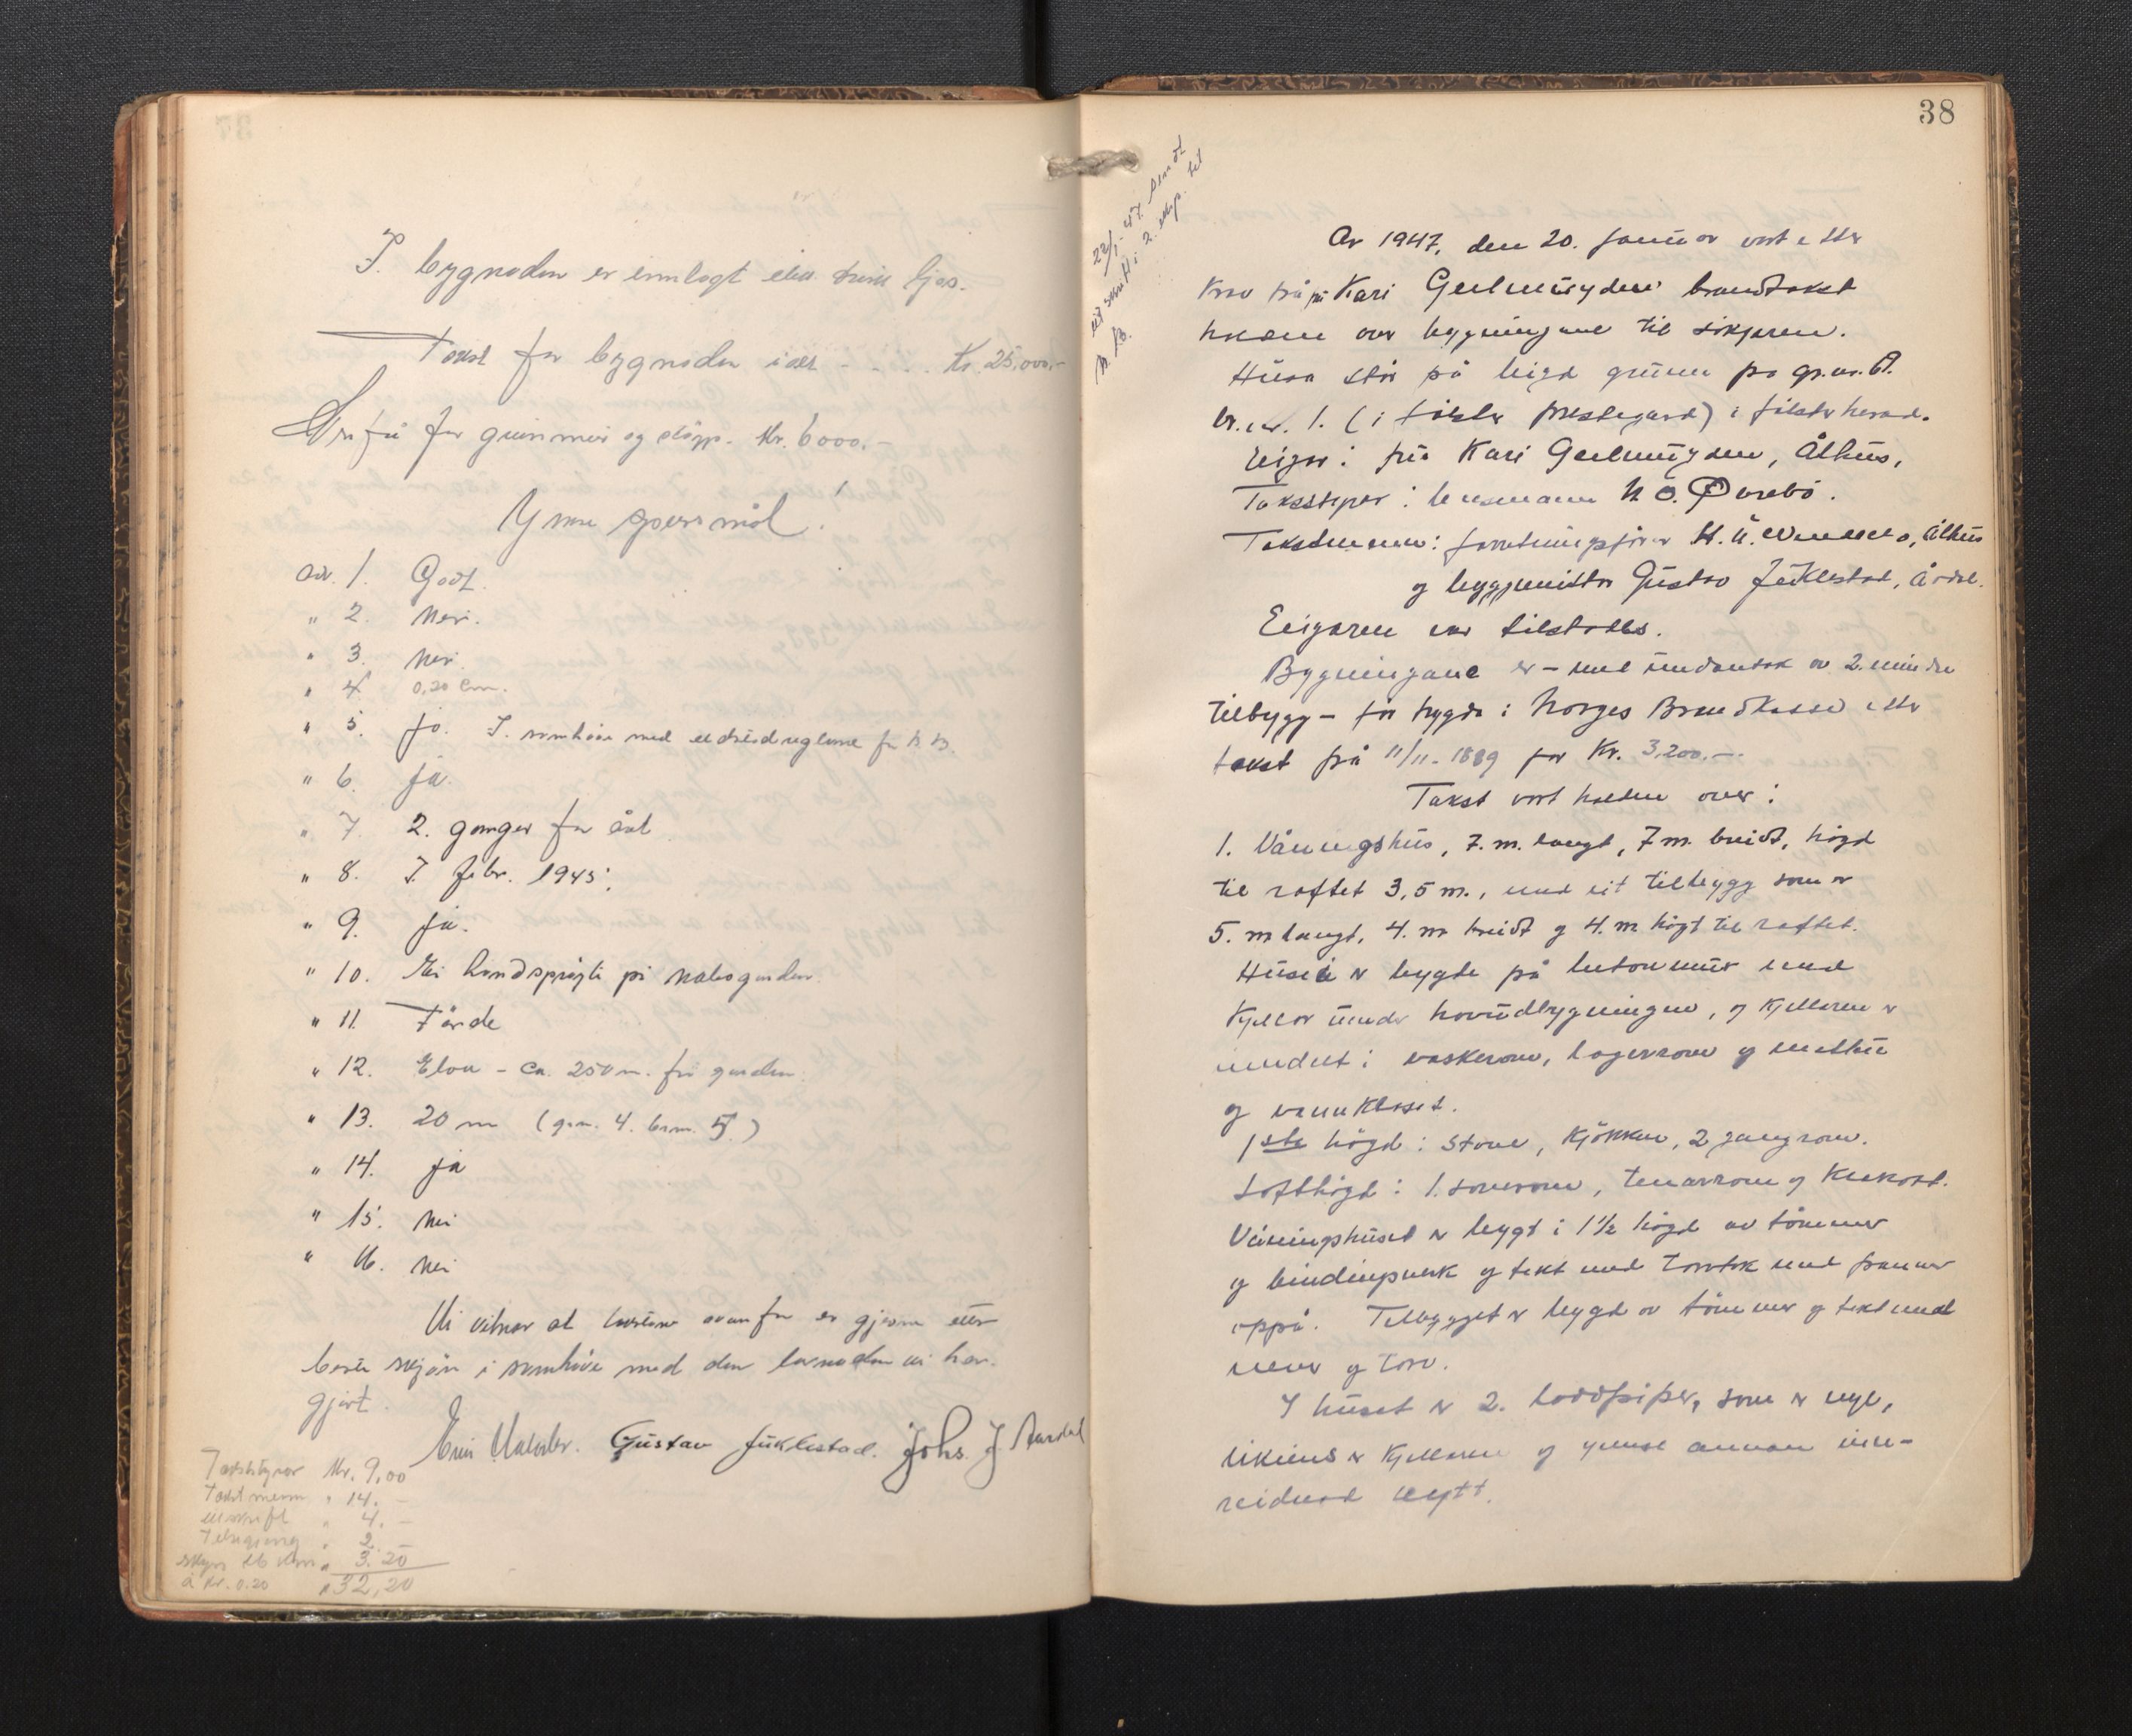 I. bygnaden er innlagt elek. ljos.
Takst for bygnaden i alt - . . . Kr. 25,000,-
for grunnmur og støyp. Kr. 6000.-
Ymse spørsmål!
ad. 1. Godt.
" 2. Nei.
" 3. Nei.
" 4. 0,20 cm.
" 5. Ja. I. samhøve med for N.B.
" 6. Ja.
" 7. 2. ganger for året
" 8. I febr. 1945.
" 9. Ja.
" 10. Ei handsprøyte på nabogarden.
" 11. Førde
" 12. Elva - ca. 250 m. frå garden.
" 13. 20 m (grn. 4. brn. 5.)
" 14. Ja
" 15. Nei
" 16. Nei
Vi vitnar at taksten ovanfor er gjeven etter
beste skjøn i samhøve med den lovnaden vi har
gjort.
Gustav Juklestad. Johs. J. Aardal
Takststyrar Kr. 9,00
Takstmenn " 14. -
utskrift " 4. -
" 2. -
skyss 16 km " 3.20
à kr. 0.20 " 32,20
38
22/1-47. sendt
utskrift i 2. eksp. til
N.B.
År 1947, den 20. januar vart etter
krav frå Kari Geelmuyden brandtakst
halden over bygningane til søkjaren.
Husa står på leigd grunn på gr.nr.
br.nr. 1. (i Jølster prestegard) i Jølster herad.
Eigar: frå Kari Geelmuyden, Ålhus,
Takststyrar: lensmann N. Ø. Ørebø.
Takstmenn: forretningsførar Ålhus
og byggmeister Gustav Juklestad, Årdal.
Eigaren var tilstades.
Bygningane er - med undantak av 2. mindre
tilbygg - før trygda i Norges Brandkasse etter
takst frå 11/11-1889 for Kr. 3,200.-
Takst vart halden over:
1. Våningshus, 7. m. langt, 7 m. breidt, høgd
til raftet 3,5 m., med eit tilbygg som er
5. m langt, 4. m breidt og 4. m høgt til raftet.
Huset er bygde på betongmur med
kjellar under hovudbygningen, og kjellaren er
inndelt i vaskerom, lagerrom og matbu
og vannkloset.
1ste høgd: stove, kjøkken, 2 gangrom.
Lofthøgd: 1. soverom, tenarrom og kvekost.
Våningshuset er bygt i 1½ høgd av tømmer
og bindingsverk og tekt med torvtak med pannor
oppå. Tilbygget er bygd av tømmer og tekt med
never og torv.
I huset er 2. loddpiper, som er nye,
likeins er kjellaren og ymse annan inn-
reidnad nytt.